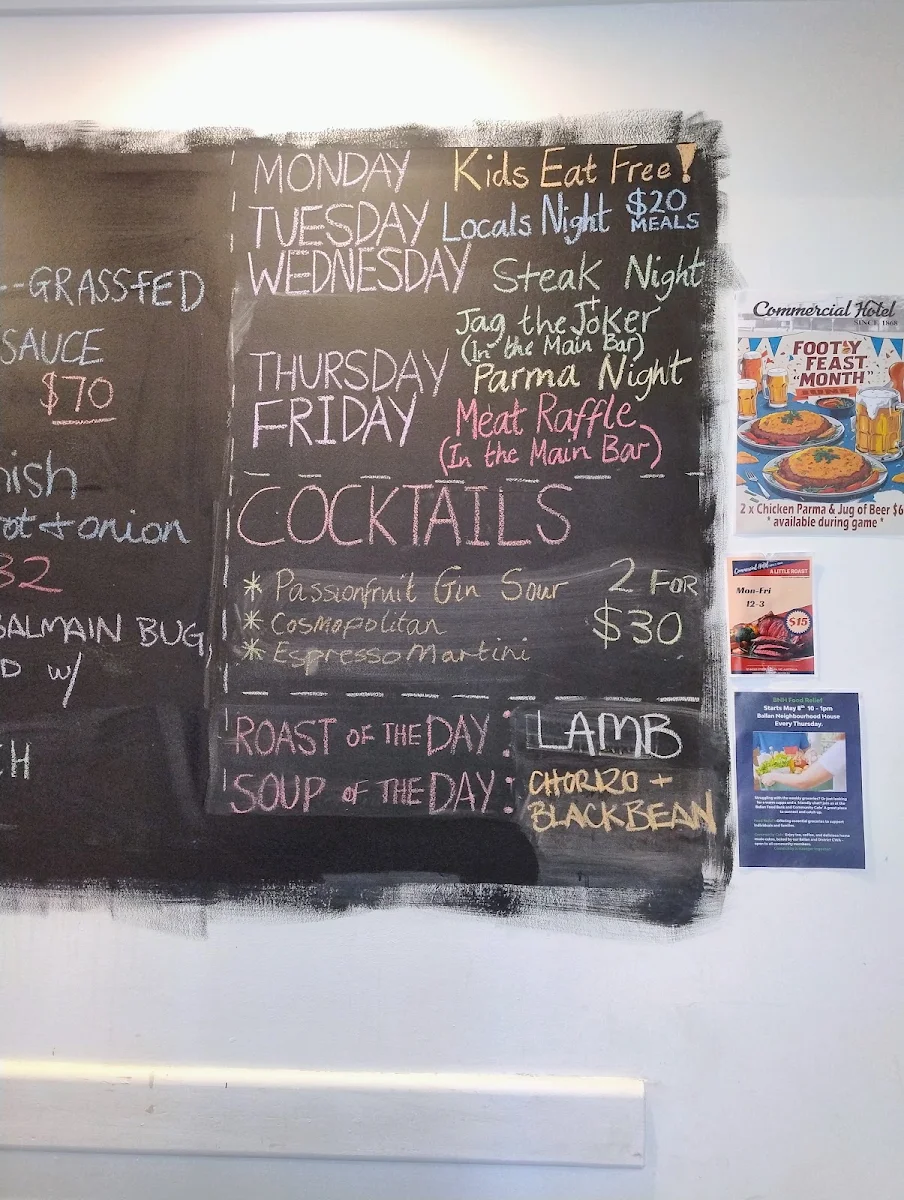 -GRASSFED
SAUCE
$70
ot + onion
32
BALMAIN BUG,
D w/
MONDAY Kids Eat Free!
TUESDAY Locals Night $20 MEALS
WEDNESDAY Steak Night
+
Jag the Joker
(In the Main Bar)
THURSDAY Parma Night
FRIDAY Meat Raffle
(In the Main Bar)
COCKTAILS
* Passionfruit Gin Sour
* Cosmopolitan
* Espresso Martini
2 FOR
$30
ROAST OF THE DAY : LAMB
SOUP OF THE DAY : CHORIZO +
BLACKBEAN
Commercial Hotel
SINCE 1868
FOOTY
FEAST
"MONTH"
2 x Chicken Parma & Jug of Beer $6
* available during game *
Commercial Hotel
A LITTLE ROAST
Mon-Fri
12-3
$15
BNH Food Relief
Starts May 8th 10 - 1pm
Ballan Neighbourhood House
Every Thursday.